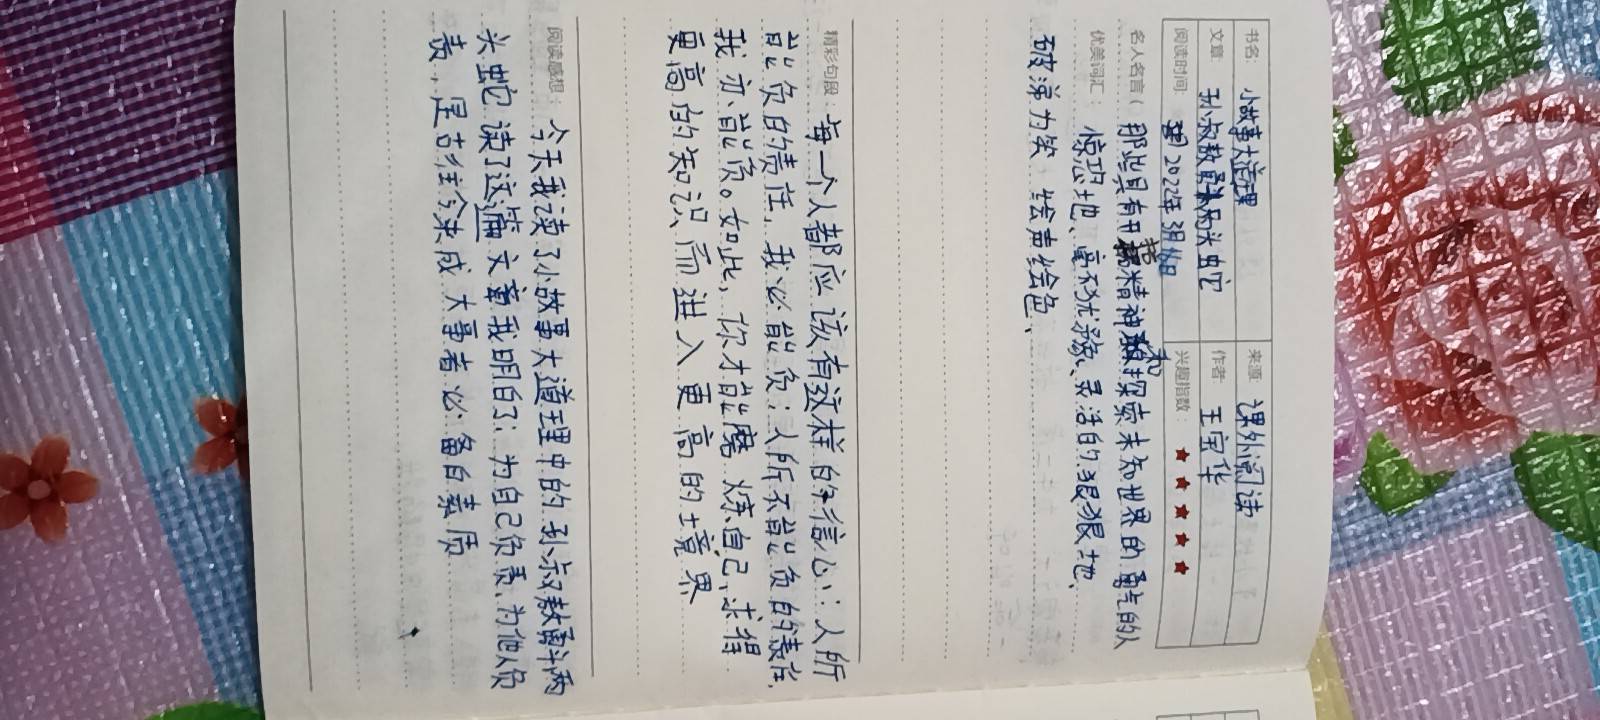 书名： 小故事大道理 来源： 课外阅读
文章： 孙叔敖勇斗两头蛇 作者： 王宝华
阅读时间： 2022年3月16日 兴趣指数： ★★★★★
名人名言（ 那些具有开拓精神和探索未知世界的勇气的人
优美词汇： 惊恐地、毫不犹豫、灵活的狠狠地、
破涕为笑 绘声绘色、
精彩句段： 每一个人都应该有这样的信心：人所
能负的责任，我必能负；人所不能负的责任，
我亦能负。如此，你才能磨炼自己，求得
更高的知识而进入更高的境界
阅读感想： 今天我读了小故事大道理中的孙叔敖勇斗两
头蛇读了这篇文章我明白了：为自己负责、为他人负
责，是古往今来成大事者必备的素质